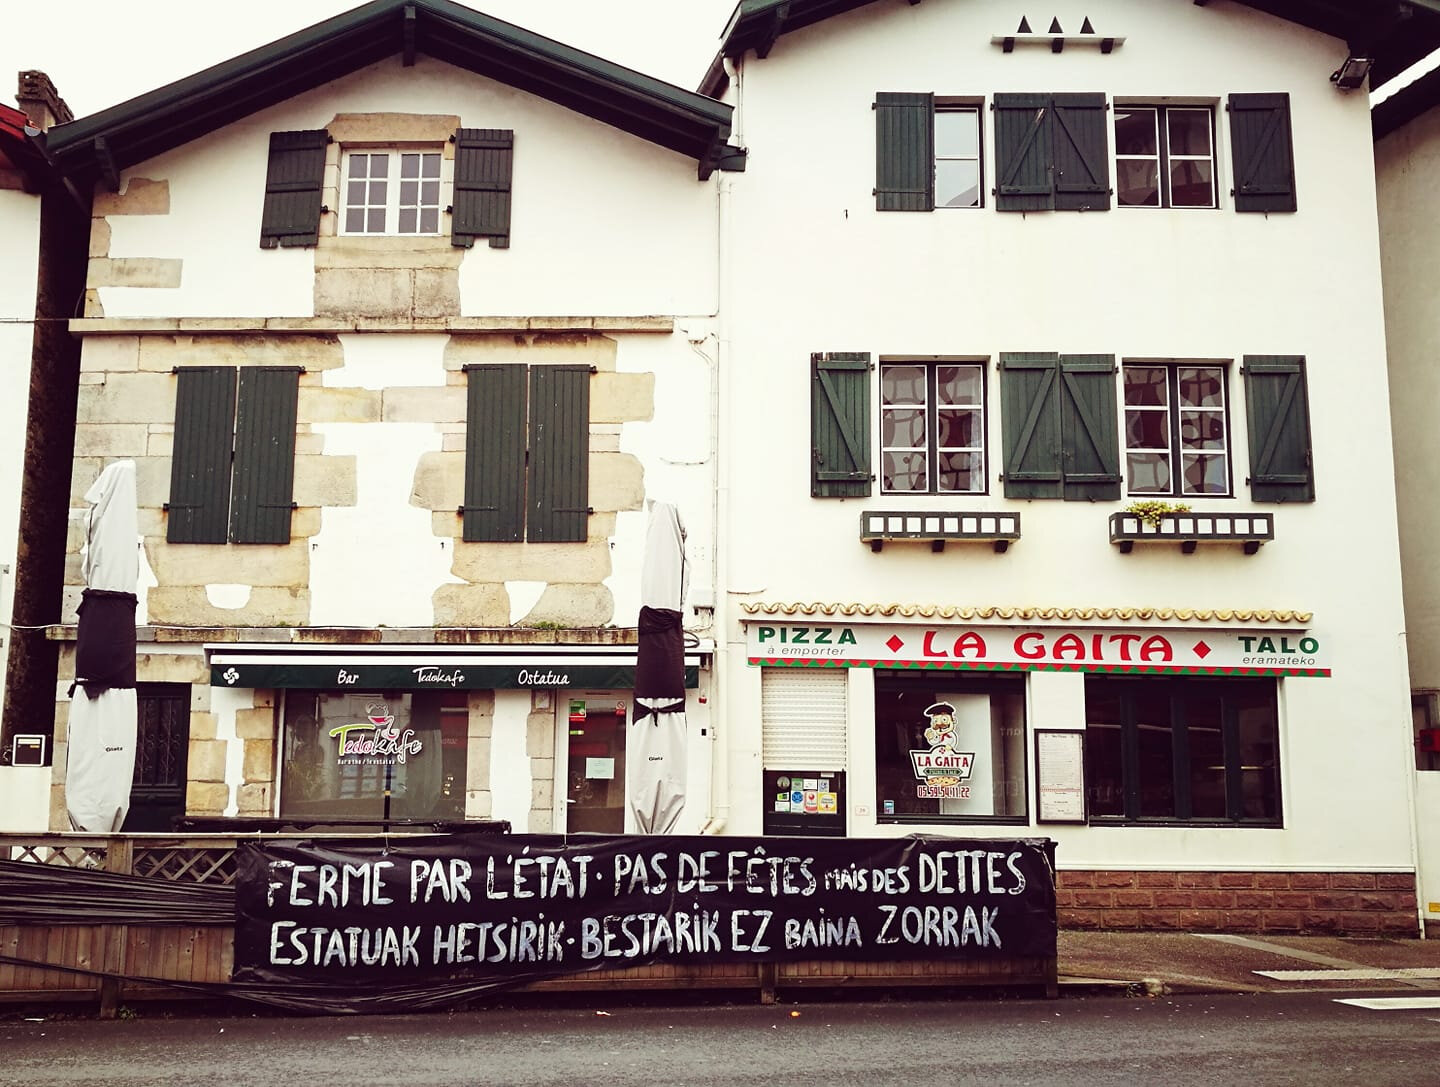 PIZZA
à emporter
LA GAITA
TALO
eramateko
Bar Tedokafe Ostatua
Tedokafe
LA GAITA
05.59.54.11.22
Glatz
Glatz
FERME PAR L'ÉTAT · PAS DE FÊTES MAIS DES DETTES
ESTATUAK HETSIRIK · BESTARIK EZ BAINA ZORRAK